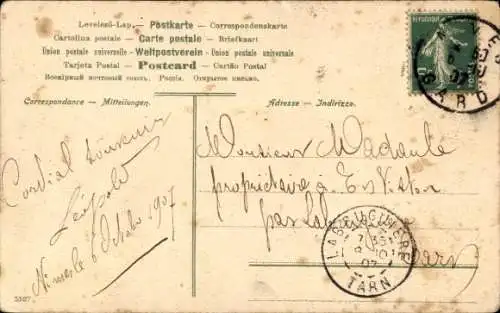 Levelező-Lap. — Postkarte — Correspondenskarte
Cartolina postale — Carte postale — Briefkaart
Union postale universelle — Weltpostverein — Unión postale universale
Tarjeta Postal — Postcard — Cartão Postal
Всемірный почтовый союз. Россія. Открытое письмо.
Correspondance — Mitteilungen.
Adresse — Indirizzo.
Cordial Souvenir
Léopold
Nimes le 6 Octobre 1907
Monsieur
propriétaire à
par Labruguière
Tarn
LABRUGUIERE
TARN
GARD
07
5107